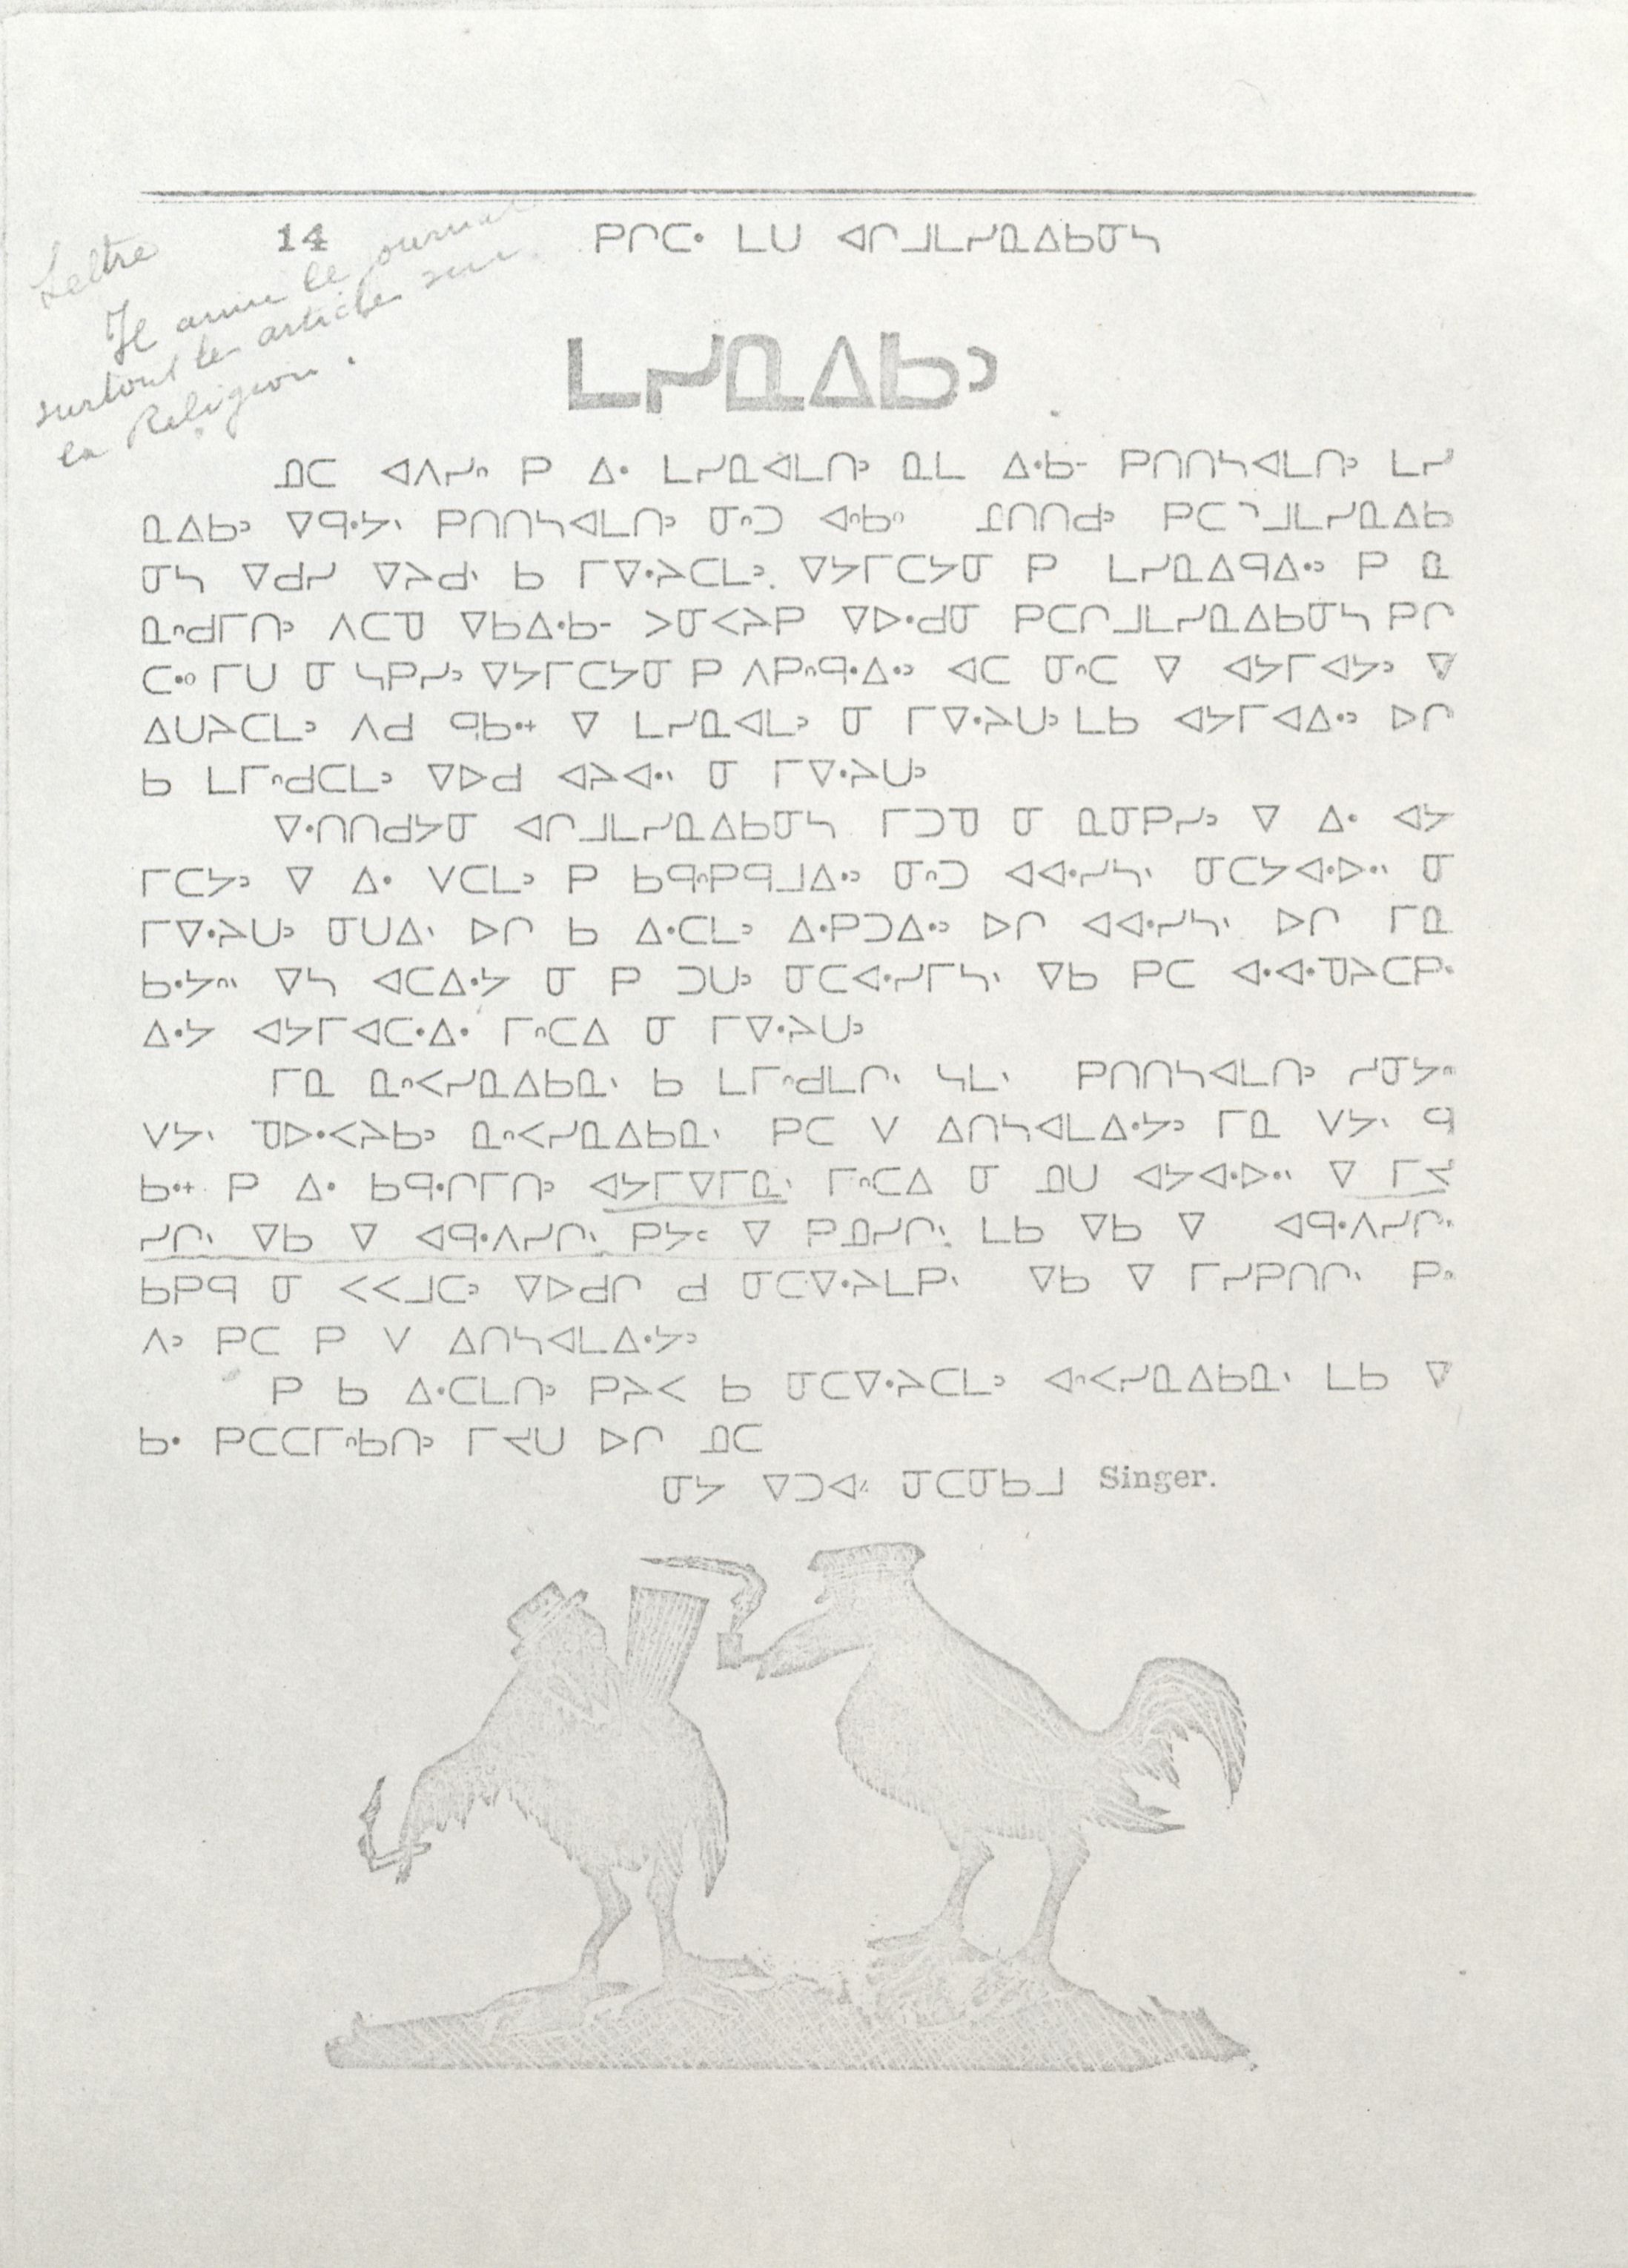 Lettre
14 ᑭᒋᑕᐧ ᒪᑌ ᐊᒋᒧᒪᓯᓇᐃᑲᓂᓴ
Il aime le journal
surtout les articles sur
la Religion.
ᒪᓯᓇᐃᑲᐣ
ᓄᑕ ᐊᐱᓯᐢ ᑭ ᐃᐧ ᒪᓯᓇᐊᒪᑎᐣ ᓇᒪ ᐃᐧᑲᐨ ᑭᑎᑎᓴᐊᒪᑎᐣ ᒪᓯ
ᓇᐃᑲᐣ ᐁᑫᐧᔭᐠ ᑭᑎᑎᓴᐊᒪᑎᐣ ᓂᐢᑐ ᐊᐢᑲᐤ ᑭᑕᒋᒧᒪᓯᓇᐃᑲ
ᓂᓴ ᐁᑯᓯ ᐁᔨᑯᐠ ᑲ ᒥᐁᐧᔨᑕᒪᐣ ᐁᔭᒥᑕᔭᓂ ᑭ ᒪᓯᓇᐃᑫᐃᐧᐣ ᑭ ᓇ
ᓇᐢᑯᒥᑎᐣ ᐱᑕᑯ ᐁᑲᐃᐧᑲᐨ ᐳᓂᐸᔨᑭ ᐁᐅᐧᑯᓂ ᑭᑕᒋᒧᒪᓯᓇᐃᑲᓂᓴ ᑭᒋ
ᑕᐧᐤ ᒥᑌ ᓂ ᓴᑭᓯᐣ ᐁᔭᒥᑕᔭᓂ ᑭ ᐱᑭᐢᑫᐧᐃᐧᐣ ᐊᑕ ᓂᐢᑕ ᐁ ᐊᔭᒥᐊᔭᐣ ᐁ
ᐃᑌᔨᑕᒪᐣ ᐱᑯ ᑫᑲᐧᕀ ᐁ ᒪᓯᓇᐊᒪᐣ ᓂ ᒥᐁᐧᔨᑌᐣ ᒪᑲ ᐊᔭᒥᐊᐃᐧᐣ ᐅᒋ
ᑲ ᒪᒥᐢᑯᑕᒪᐣ ᐁᐅᑯ ᐊᔨᐊᐧᐠ ᓂ ᒥᐁᐧᔨᑌᐣ
ᐁᐧᑎᑎᑯᔭᓂ ᐊᒋᒧᒪᓯᓇᐃᑲᓂᓴ ᒥᑐᑯ ᓂ ᓇᓂᑭᓯᐣ ᐁ ᐃᐧ ᐊᔭ
ᒥᑕᔭᐣ ᐁ ᐃᐧ ᐯᑕᒪᐣ ᑭ ᑲᑫᐢᑭᑫᒧᐃᐧᐣ ᓂᐢᑐ ᐊᐊᐧᓯᓴᐠ ᓂᑕᔭᐊᐧᐅᐧᐠ ᓂ
ᒥᐁᐧᔨᑌᐣ ᓂᑌᐃᐠ ᐅᒋ ᑲ ᐃᐧᑕᒪᐣ ᐃᐧᑭᑐᐃᐧᐣ ᐅᒋ ᐊᐊᐧᓯᓴᐠ ᐅᒋ ᒥᓇ
ᑲᐧᔭᐢᐠ ᐁᓴ ᐊᑕᐃᐧᔭ ᓂ ᑭ ᑐᑌᐣ ᓂᑕᐊᐧᓯᒥᓴᐠ ᐁᑲ ᑭᑕ ᐊᐧᐊᐧᑯᔨᑕᑭᐧ
ᐃᐧᔭ ᐊᔭᒥᐊᑕᐧᐃᐧ ᒥᐢᑕᐃ ᓂ ᒥᐁᐧᔨᑌᐣ
ᒥᓇ ᓇᐢᐸᓯᓇᐃᑲᓇᐠ ᑲ ᒪᒥᐢᑯᒪᒋᐠ ᓴᒪᐠ ᑭᑎᑎᓴᐊᒪᑎᐣ ᓯᓂᔭᐢ
ᐯᔭᐠ ᑯᐅᐧᐸᔨᑲᐣ ᓇᐢᐸᓯᓇᐃᑲᓇᐠ ᑭᑕ ᐯ ᐃᑎᓴᐊᒪᐃᐧᔭᐣ ᒥᓇ ᐯᔭᐠ ᑫ
ᑲᐧᕀ ᑭ ᐃᐧ ᑲᑫᐧᒋᒥᑎᐣ ᐊᔭᒥᐁᒥᓇᐠ ᒥᐢᑕᐃ ᓂ ᓄᑌ ᐊᔭᐊᐧᐅᐧᐠ ᐁ ᒥᔪ
ᓯᒋᐠ ᐁᑲ ᐁ ᐊᑫᐧᐱᓯᒋᐠ ᑭᔭᑦ ᐁ ᑭᓄᓯᒋᐠ ᒪᑲ ᐁᑲ ᐁ ᐊᑫᐧᐱᓯᒋᐠ
ᑲᑭᑫ ᓂ ᐸᐸᒧᑕᐣ ᐁᐅᑯᒋ ᑯ ᓂᑕᐁᐧᔨᒪᑭᐠ ᐁᑲ ᐁ ᒥᓯᑭᑎᒋᐠ ᑭᐢ
ᐱᐣ ᑭᑕ ᑭ ᐯ ᐃᑎᓴᐊᒪᐃᐧᔭᐣ
ᑭ ᑲ ᐃᐧᑕᒪᑎᐣ ᑭᔨᐸ ᑲ ᓂᑕᐁᐧᔨᑕᒪᐣ ᐊᐢᐸᓯᓇᐃᑲᓇᐠ ᒪᑲ ᐁ
ᑲᐧ ᑭᑕᑕᒥᐢᑲᑎᐣ ᒥᔪᑌ ᐅᒋ ᓄᑕ
ᓂᔭ ᐁᑐᐊᐠ ᓂᑕᓂᑲᒧ Singer.